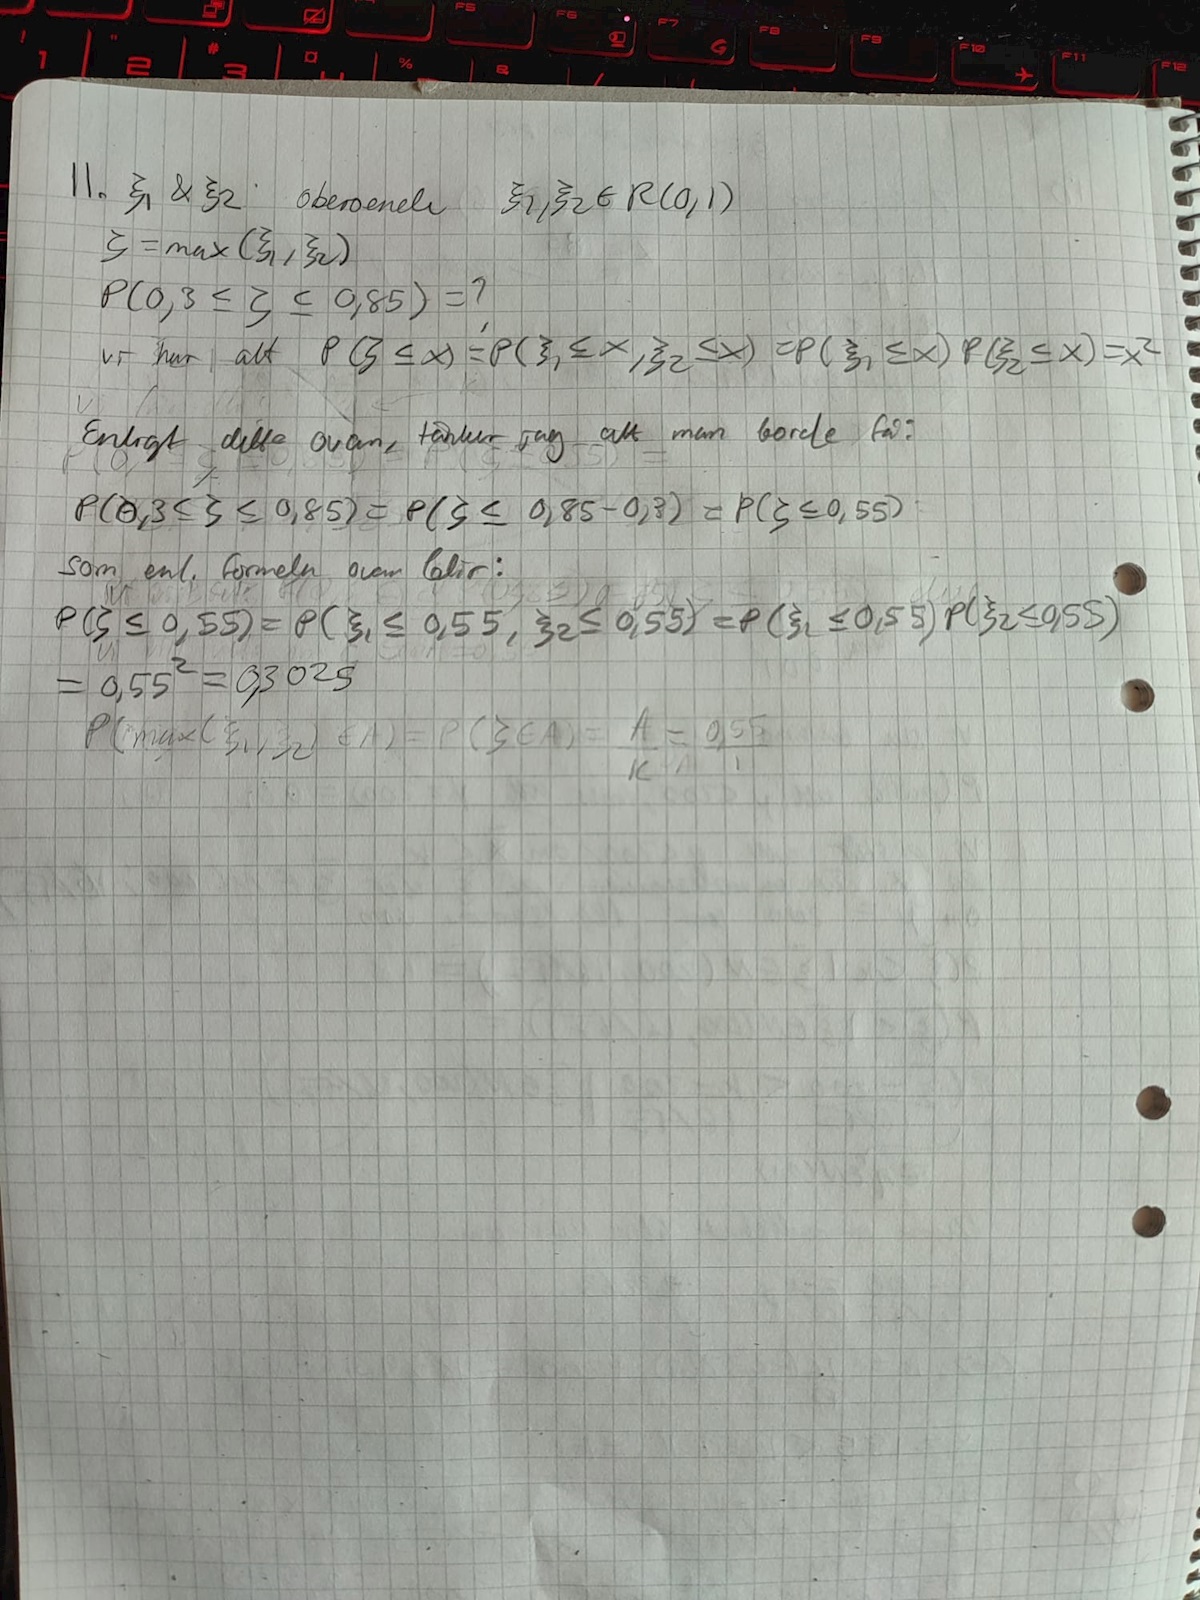 F5
F6
F7
F8
F9
F10
F11
F12
! 1
" 2
# 3
¤
%
&
/
G
11. ξ1 & ξ2 oberoende ξ1, ξ2 ∈ R(0,1)
ζ = max(ξ1, ξ2)
P(0,3 ≤ ζ ≤ 0,85) = ?
vi har att P(ζ ≤ x) = P(ξ1 ≤ x, ξ2 ≤ x) = P(ξ1 ≤ x) P(ξ2 ≤ x) = x²
Enligt detta ovan, tänker jag att man borde få:
P(0,3 ≤ ζ ≤ 0,85) = P(ζ ≤ 0,85-0,3) = P(ζ ≤ 0,55)
Som enl. formeln ovan blir:
P(ζ ≤ 0,55) = P(ξ1 ≤ 0,55, ξ2 ≤ 0,55) = P(ξ1 ≤ 0,55) P(ξ2 ≤ 0,55)
= 0,55² = 0,3025
P(max(ξ1, ξ2) ∈ A) = P(ξ ∈ A) = A/K = 0,55/1